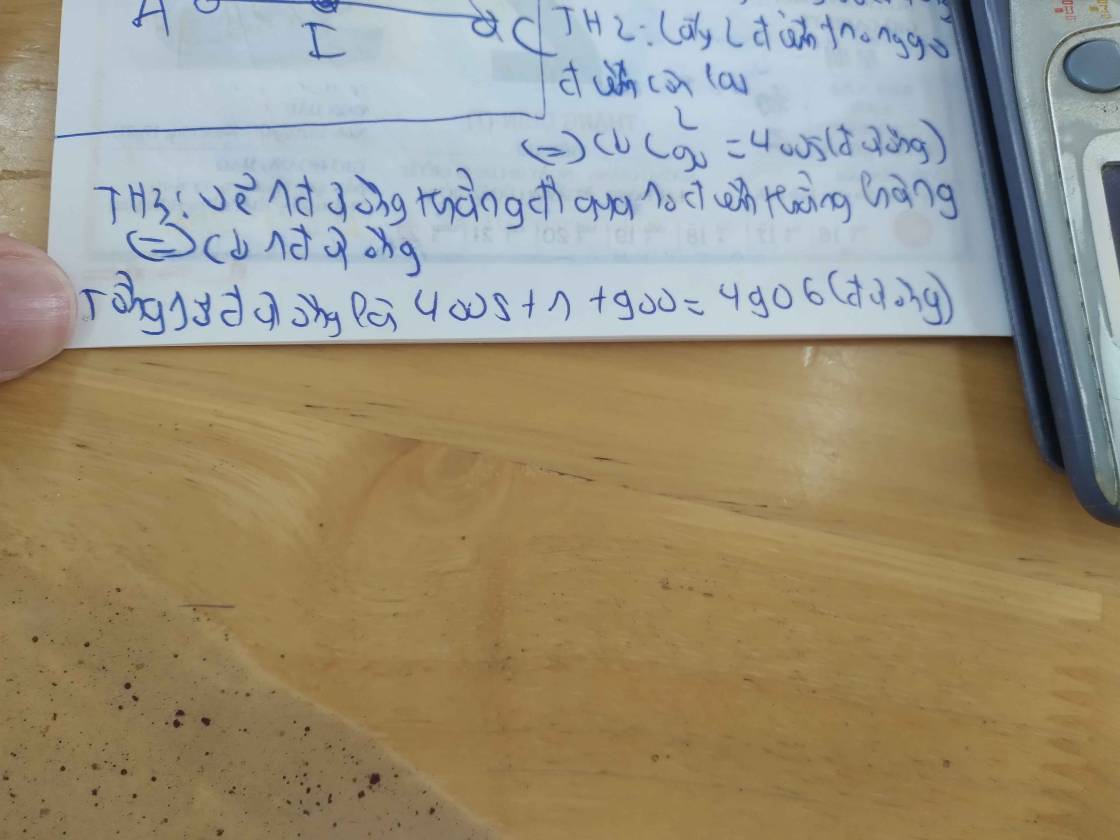 A
I
C
TH2: Lấy 2 điểm trong 90
điểm còn lại
(=) Có C²₉₀ = 4005 (đường)
TH3: vẽ 1 đường thẳng đi qua 10 điểm thẳng hàng
(=) Có 1 đường
Tổng số đường là 4005 + 1 + 900 = 4906 (đường)